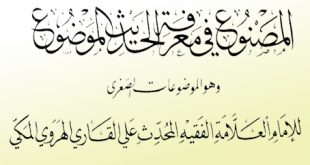 المصنوع في معرفة الحديث الموضوع
وهو الموضوعات الصغرى
للإمام العلامة الفقيه المحدث علي القاري الهروي المكي